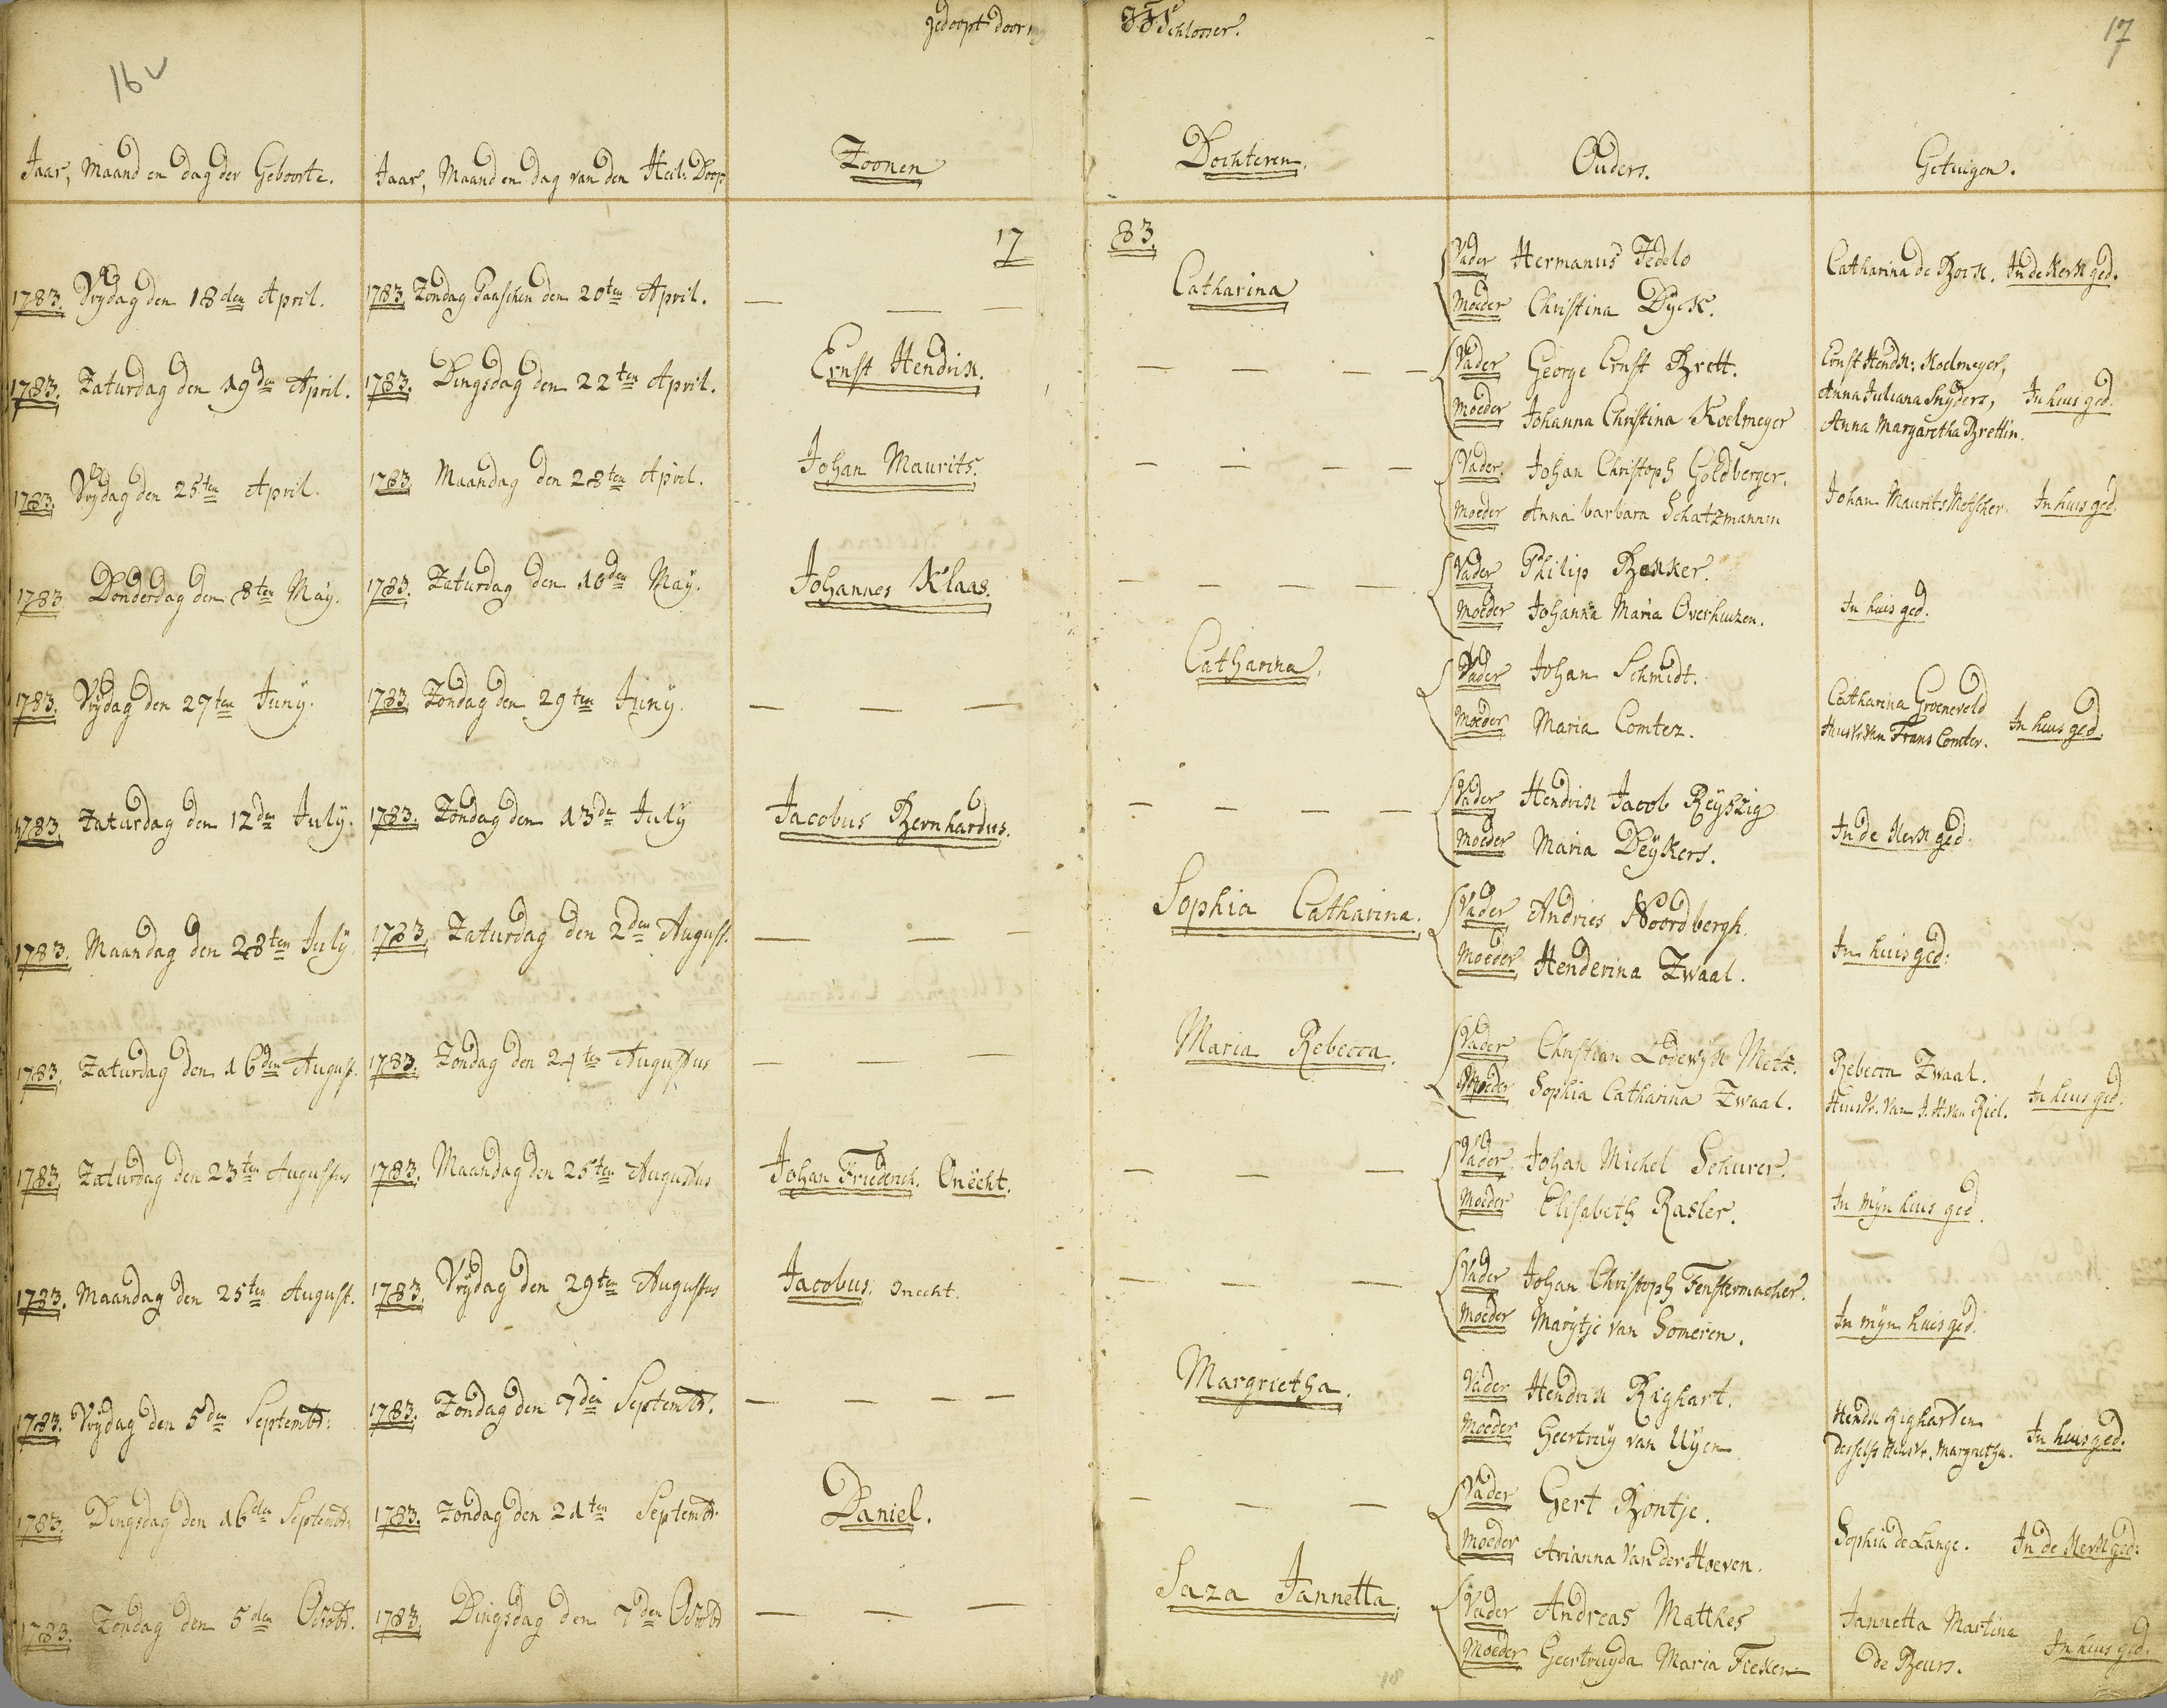 gedoopt door JJSchlosser.
16v
17
Jaar, Maand en dag der Geboorte. Jaar, Maand en dag van den Heil: Doop Zoonen Dochteren. Ouders. Getuigen.
17 83.
1783. Vrydag den 18den April. 1783. Zondag Paaschen den 20ten April. — — — Catharina Vader Hermanus Fedelo Catharina de Bock. In de Kerk ged.
Moeder Christina Dyck.
1783. Zaturdag den 19den April. 1783. Dingsdag den 22ten April. Ernst Hendrik. — — — — Vader George Ernst Brett. Ernst Hendk: Koelmeyer,
Anna Juliana Snyders, In huis ged.
Moeder Johanna Christina Koelmeyer Anna Margaretha Brettin.
1783. Vrydag den 25ten April. 1783. Maandag den 28ten April. Johan Maurits. — — — — Vader. Johan Christoph Goldberger.
Moeder Anna barbara Schatzmannin Johan Maurits Metscher. In huis ged.
1783 Donderdag den 8ten May. 1783. Zaturdag den 10den May. Johannes Klaas. — — — — Vader Philip Bekker.
Moeder Johanna Maria Overhuizen. In huis ged.
1783. Vrydag den 27ten Juny. 1783. Zondag den 29ten Juny. — — — Catharina. Vader Johan Schmidt. Catharina Groeneveld
Moeder Maria Comtez. Huisvr. van Frans Comter. In huis ged.
1783. Zaturdag den 12den July. 1783. Zondag den 13de July Jacobus Bernhardus. — — — — Vader Hendrik Jacob Reyszig
Moeder Maria Deykers. In de Kerk ged.
1783. Maandag den 28ten July. 1783. Zaturdag den 2den August. — — — Sophia Catharina. Vader Andries Noordbergh.
Moeder Henderina Zwaal. In huis ged:
1783. Zaturdag den 16den August. 1783. Zondag den 24ten Augustus — — — Maria Rebecca. Vader Christian Lodewyk Metz. Rebecca Zwaal.
Moeder Sophia Catharina Zwaal. Huisvr. van J. H. van Riel. In huis ged.
1783. Zaturdag den 23ten Augustus 1783. Maandag den 25ten Augustus Johan Friederich. Onëcht. — — — Vader. Johan Michel Schurer.
Moeder Elisabeth Rasler. In myn huis ged.
1783. Maandag den 25ten August. 1783. Vrydag den 29ten Augustus Jacobus. onecht. — — — Vader Johan Christoph Fenstermacher.
Moeder Marytje van Someren. In myn huis ged.
1783. Vrydag den 5den Septembr: 1783. Zondag den 7den Septembr. — — — — Margrietha. Vader Hendrik Righart. Hendk Righart en
Moeder Geertruy van Uyen desselfs Huisvr. Margrietha. In huis ged.
1783. Dingsdag den 16den Septembr. 1783. Zondag den 21ten Septembr. Daniel. — — — Vader Gert Bontje.
Moeder Arianna van der Hoeven. Sophia de Lange. In de Kerk ged:
1783. Zondag den 5den Octobr. 1783. Dingsdag den 7den Octobr — — — Saza Jannetta. Vader Andreas Matthes Jannetta Martina
Moeder Geertruyda Maria Fieken de Beurs. In huis ged.